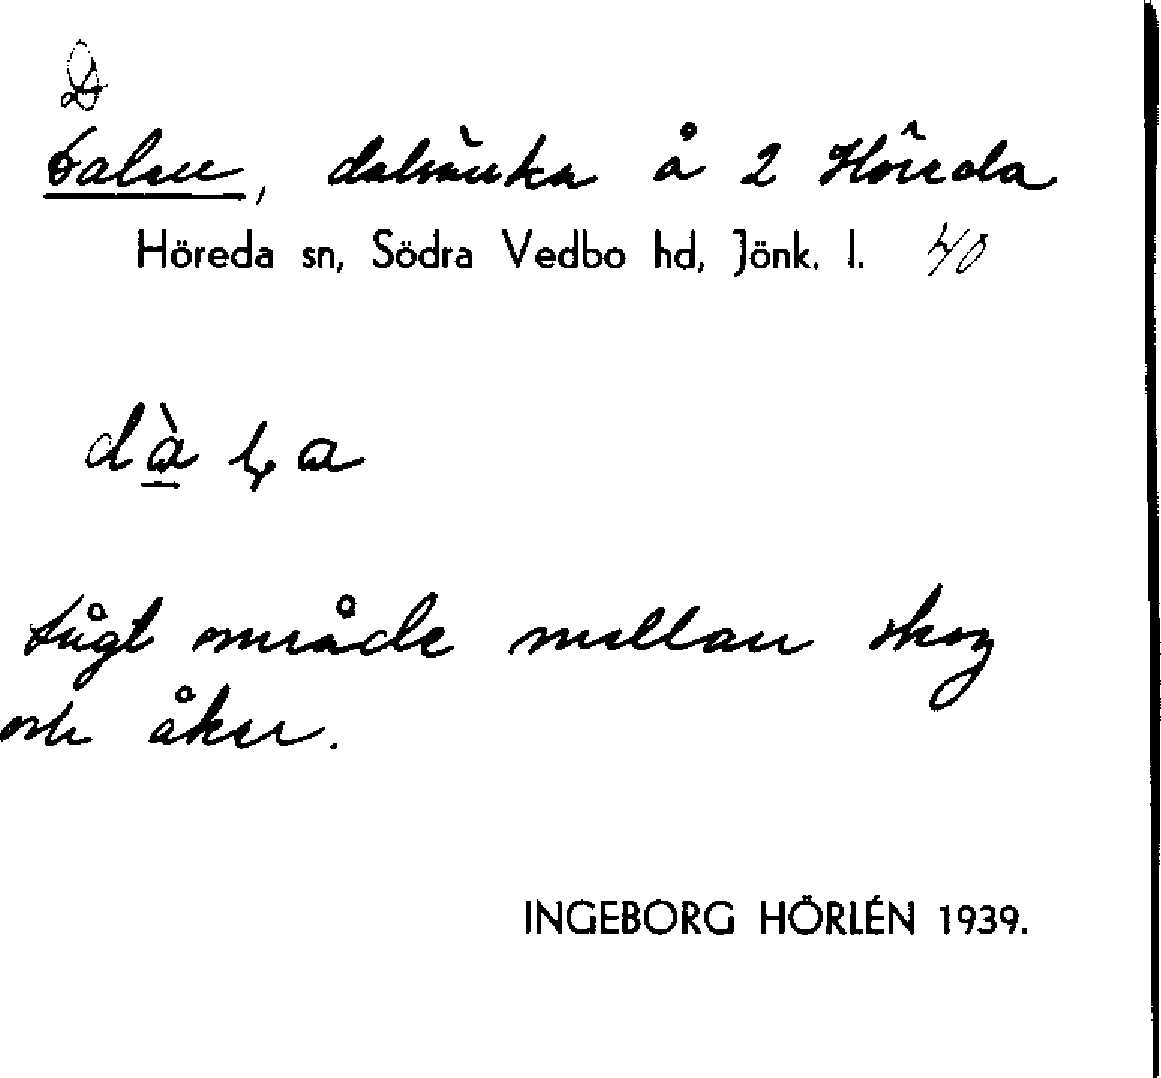 D
Dalen, dalsänka å 2 Höreda
Höreda sn, Södra Vedbo hd, Jönk. l. 40
Lågt område mellan skog
och åker.
INGEBORG HÖRLÉN 1939.